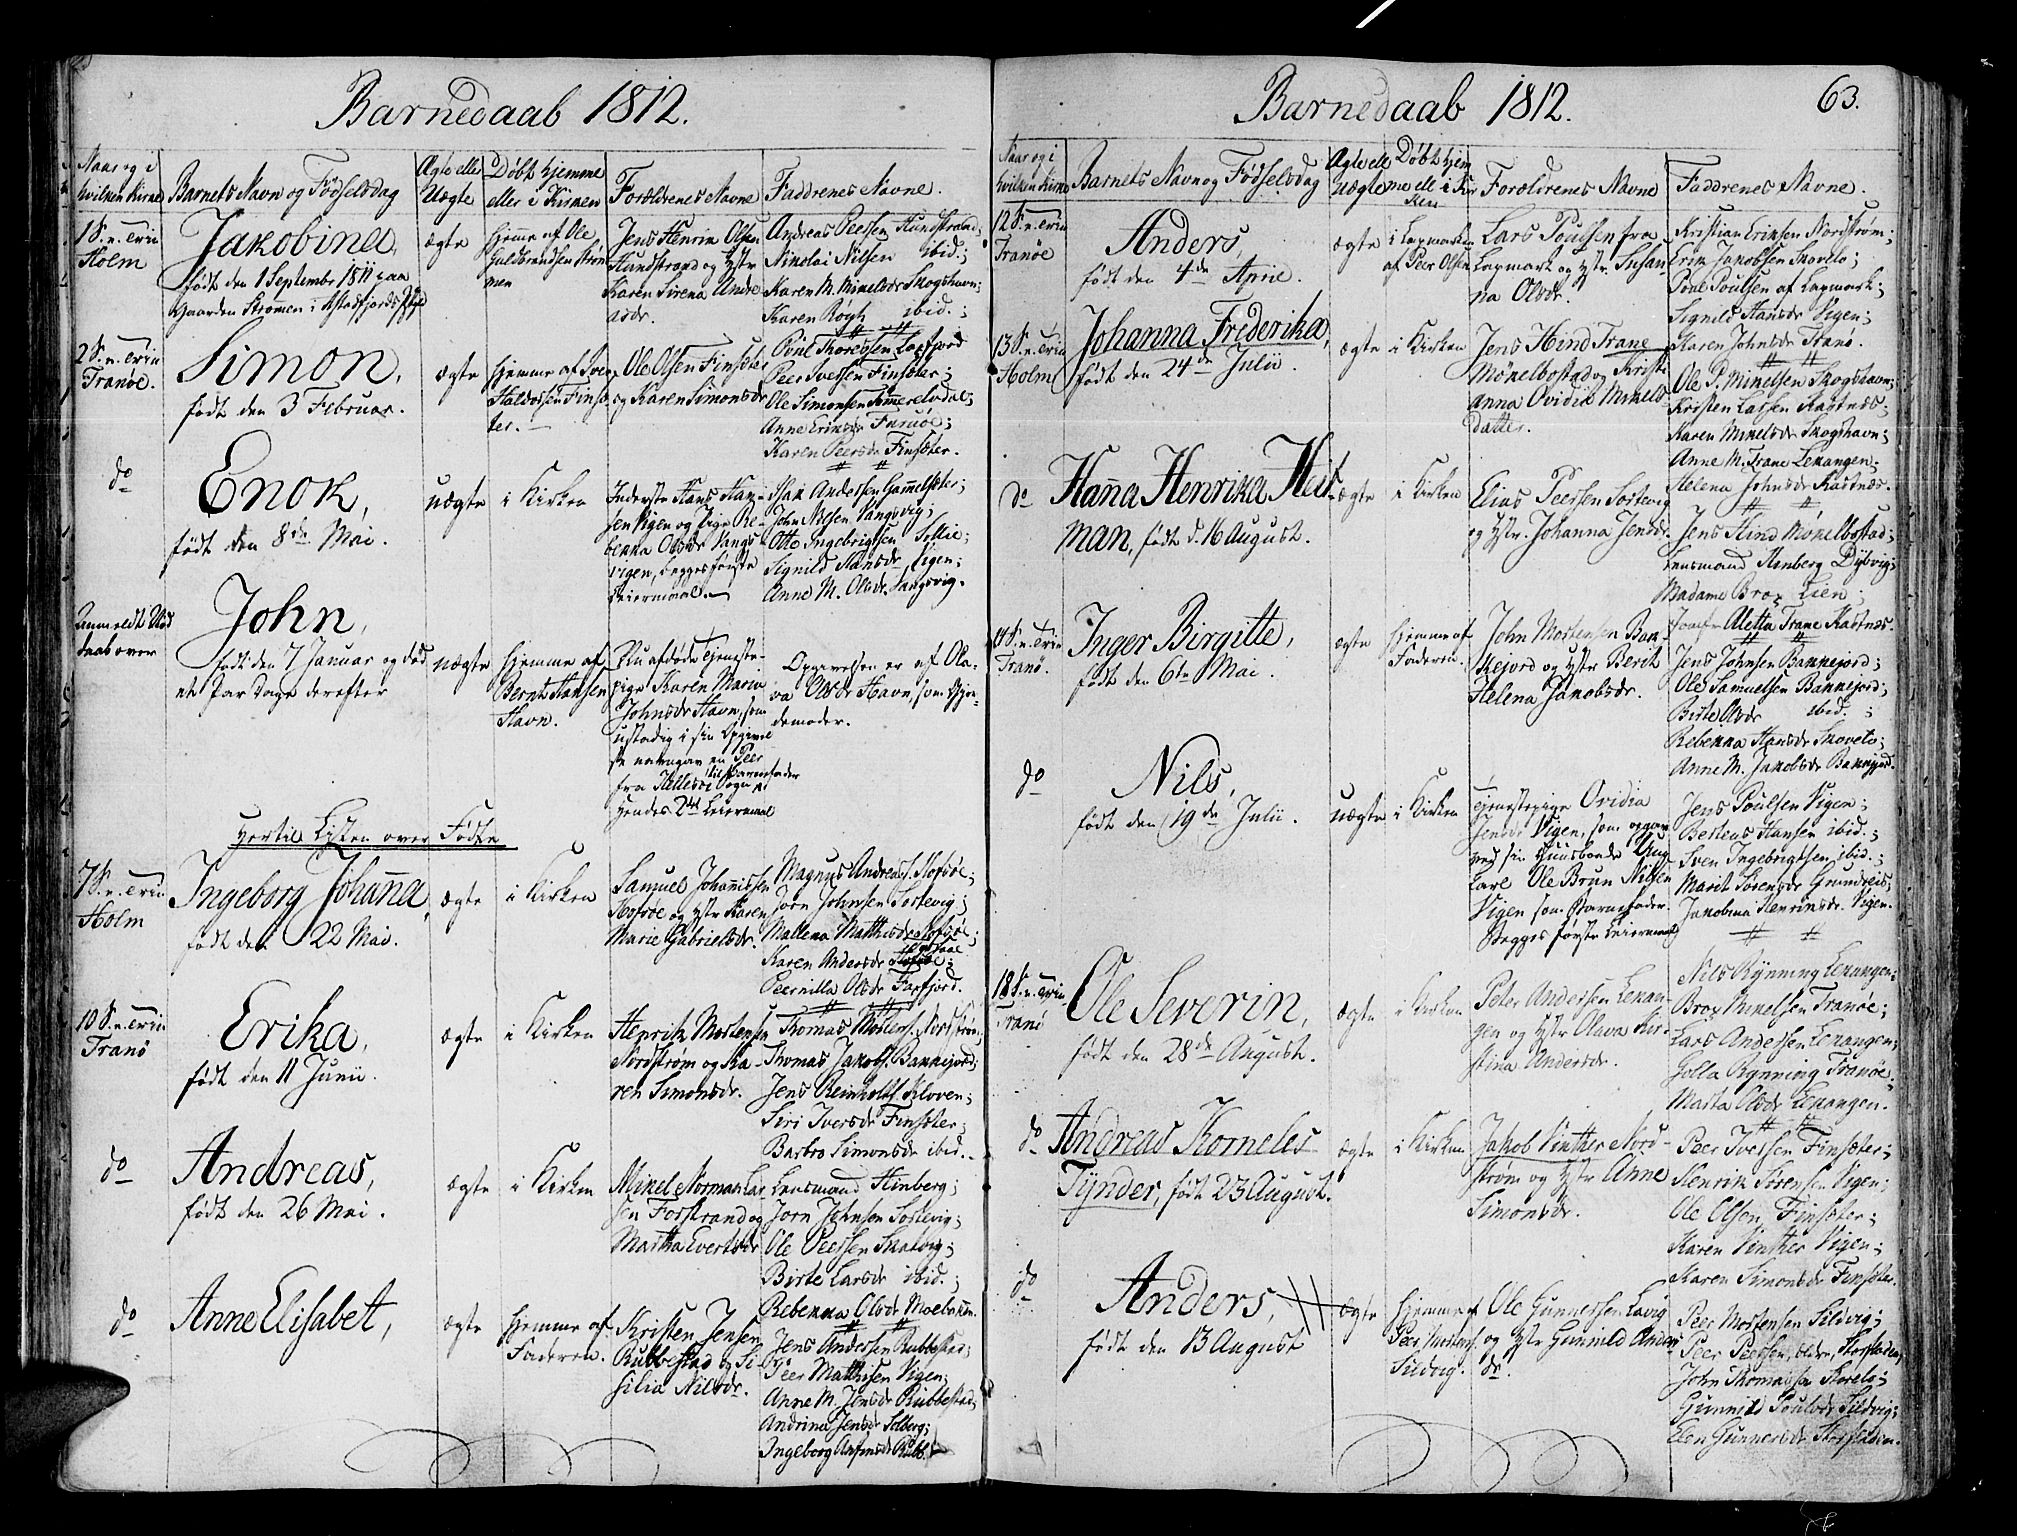 Barnedaab 1812.
Naar og i hvilken Kirke
Barnets Navn og Födselsdag
Ægte eller Uægte
Döbt hjemme eller i Kirken
Forældrenes Navne
Faddrenes Navne.
1 S. n. Trin
Holm
Jakobina,
födt den 1 September 1811 paa
Gaarden Strømen i
ægte
hjemme af Ole
Guldbrandsen Strøm
men
Jens Henrik Olsen
Hundstrand og Hstr
Karen Sirena Andre
asdr.
Andreas Peersen Hundstrand;
Nikolai Nilsen ibid.;
Karen M. Mikelsdr Skogshavn;
Karen Røgh ibid.;
2 S. n. Trin
Tranöe.
Simon,
födt den 3 Februar.
ægte
hjemme af Iver
Haldorsen Finsæ-
ter.
Ole Olsen Finsæter
og Karen Simonsdr
Povel Thoresen Laxfjord
Peer Iversen Finsæter;
Ole Simonsen
Anne Eriksdr Furuöe;
Karen Peersdr Finsæter.
do
Enok,
födt den 8de Mai.
uægte
i Kirken
Inderste Hans Han-
sen Vigen og Pige Re-
bekka Olsdr Vangs-
vigen, begges første
Leiermaal.
Isak Andersen Gammelsæter;
John Nilsen Vangsvig;
Otto Ingebrigtsen Sollie;
Signild Hansdr Vigen;
Anne M. Olsdr Vangsvig.
Anmeldt Nød
daab over
John,
født den 7 Januar og död
et Par Dage derefter
uægte
hjemme af
Bernt Hansen
Havn.
Nu afdøde Tjeneste-
pige Karen Maria
Johnsdr Havn, som
ustadig i sin Opgivel
se navngav en Peer
fra Hillesøe Sogn til Barnefader
Hendes 2det Leiermaal
Opgivelsen er af Ola-
va Olsdr Havn, som Gjor-
demoder.
Hertil Listen over Födte
7 S. n. Trin
Holm
Ingeborg Johanna,
födt den 22 Mai.
ægte
i Kirken
Samuel Johannissen
Hofsöe og Hstr Karen
Marie Gabrielsdr.
Magnus Andreas. Hofsöe;
Jorn Johnsen Sörlevig;
Mallena Matthisdr Hofsöe;
Karen Andersdr
Peernilla Olsdr Faxfjord.
10 S. n. Trin
Tranö
Erika,
födt den 11 Junii.
ægte
i Kirken
Henrik Mortensen
Nordström og Ka-
ren Simonsdr.
Thomas Mortens. Nordström;
Thomas Jakobs. Bakkejord;
Jens Reinholts. Kloven;
Siri Iversdr Finsæter;
Barbro Simonsdr ibid.
do
Andreas,
födt den 26 Mai.
ægte
i Kirken
Mikel Norman Lar
sen Forstrand og
Martha Evertsdr
Lensmand Hinberg;
Jorn Johnsen Sörlevig;
Ole Peersen Skatvig;
Birte Larsdr ibid.;
Rebekka Olsdr Moebakken.
do
Anne Elisabet,
ægte
hjemme af
Faderen.
Kristen Jensen
Rubbestad og Si
silia Nilsdr.
Jens Andersen Rubbestad;
Peer Matthisen Vigen;
Anne M. Jensdr Rubbestad;
Andrina Jensdr Solberg;
Ingeborg Anfinsdr Rubb.
Barnedaab 1812.
63.
Naar og i hvilken Kirke
Barnets Navn og Födselsdag
Ægte ell Uægte
Döbt hjem me ell i Kir ken
Forældrenes Navne
Faddrenes Navne.
12 S. n. Trin
Tranöe
Anders,
födt den 4de April.
ægte
i Laxmarken
af Peer Olsen
Lars Poulsen fra
Laxmark og Hstr. Susan
na Olsdr.
Kristian Eriksen Nordström;
Erik Jakobsen Skovelv;
Povel Poulsen af Laxmark;
Signild Hansdr Vigen;
Karen Johnsdr Tranö.
13 S. n. Trin
Holm
Johanna Frederika,
födt den 24de Julii.
ægte
i Kirken
Jens Hind Trane
Mökelbostad og Kristi
anna Ovidia Mikels-
datter.
Ole P. Mikelsen Skogshavn;
Kristen Larsen Kastnæs;
Karen Mikelsdr Skogshavn;
Anne M. Trane Lekangen;
Helena Johnsdr Kastnæs.
do
Hanna Henrika Heit
man, födt d. 16 August.
ægte
i Kirken
Elias Peersen Sörlevig
og Hstr. Johanna Jensdr.
Jens Hind Mökelbostad;
Lensmand Hemberg Dybvig;
Madame Brox Lien;
Jomfr Aletta Trane Kastnæs.
14 S. n. Trin
Tranö.
Inger Birgitte,
födt den 6te Mai.
ægte
hjemme af
Faderen.
John Mortensen Bak-
kejord og Hstr Berit
Helena Jakobsdr.
Jens Johnsen Bakkejord;
Ole Samuelsen Bakkejord;
Birte Olsdr ibid.;
Rebekka Hansdr Skovelv;
Anne M. Jakobsdr Bakkejord.
do
Nils,
födt den 19de Julii.
uægte
i Kirken
Tjenestepige Ovidia
Jensdr Vigen, som opgav
ved sin Huusbonde Ung
karl Ole Brun Nilsen
Vigen som Barnefader.
Begges første Leiermaal
Jens Poulsen Vigen;
Berteus Hansen ibid.;
Sven Ingebrigtsen ibid.;
Marit Sörensdr Grundreis;
Jakobina Henriksdr. Vigen.
18 S. n. Trin.
Tranö
Ole Severin,
födt den 28de August.
ægte
i Kirken
Peter Andersen Lekan-
gen og Hstr Olava Kir-
stina Andersdr.
Nils Rynning Lekangen;
Brox Mikelsen Tranöe;
Lars Andersen Lekangen;
Golla Rynning Tranöe;
Marta Olsdr Lekangen.
do
Andreas Kornelus
Tynder, födt 23 August.
ægte
i Kirken
Jakob Vinther Nord-
ström og Hstr Anne
Simonsdr.
Peer Iversen Finsæter;
Henrik Sörensen Vigen;
Ole Olsen Finsæter;
Karen Vinther Vigen;
Karen Simonsdr Finsæter.
do
Anders,
födt den 13 August
ægte
hjemme af
Peer Mortens.
Sildvig.
Ole Gunnersen Lavig
og Hstr Gunnild Anders
dr.
Peer Mortensen Sildvig;
Peer Peersen, ældre, Storstaden;
John Thomassen Storelv;
Gunnild Poulsdr Sildvig;
Elen Gunnersdr Storstaden.